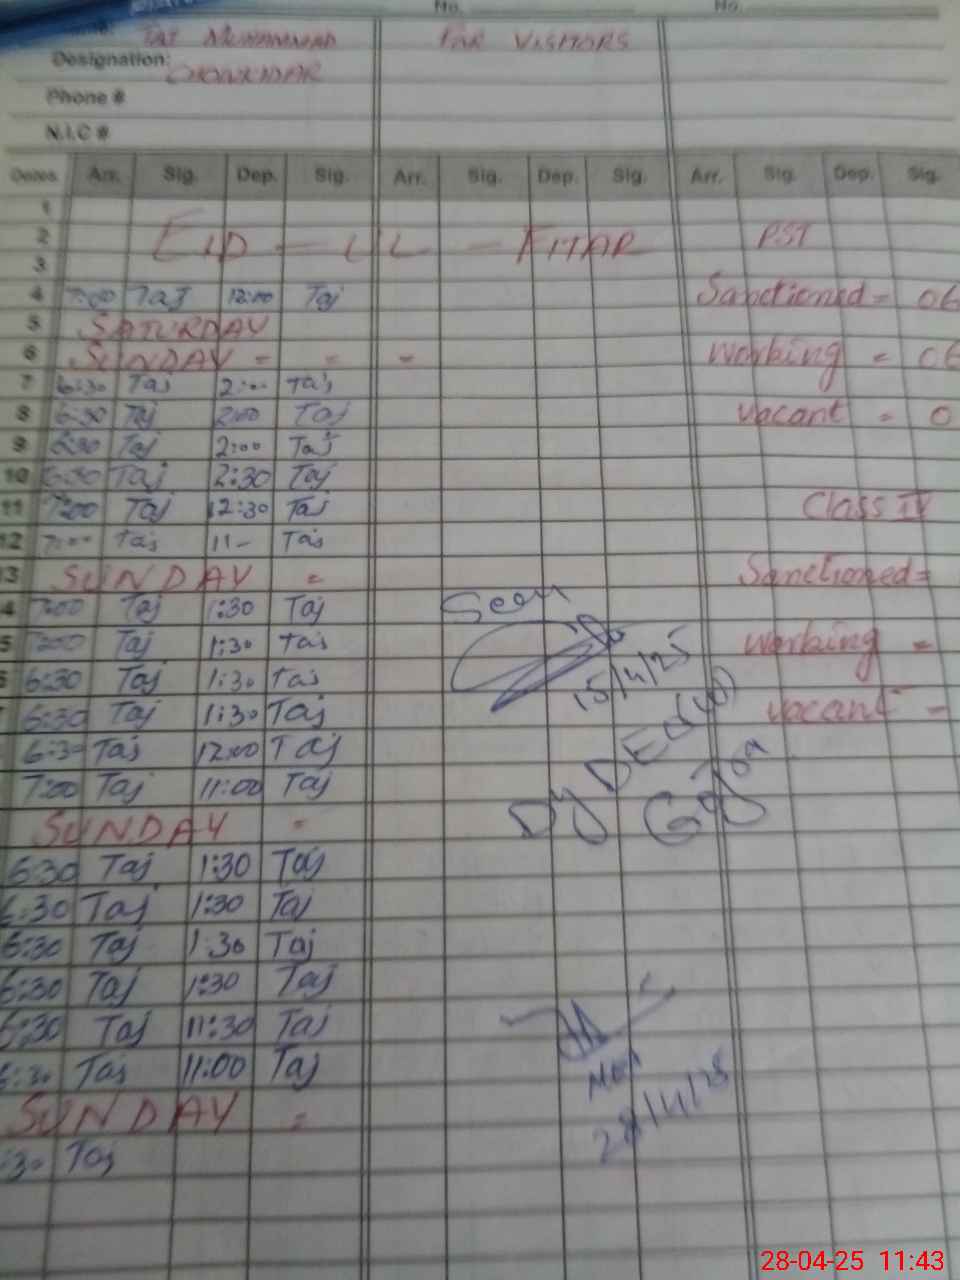 No. No.
TAJ MUHAMMAD FOR VISITORS
Designation: CHOWKIDAR
Phone #
N.I.C #
Dates Arr. Sig. Dep. Sig. Arr. Sig. Dep. Sig. Arr. Sig. Dep. Sig.
1
2 EID - UL - FITAR PST
3
4 7:00 Taj 12:00 Taj Sanctioned = 06
5 SATURDAY
6 SUNDAY - - - Working = 06
7 6:30 Taj 2:00 Taj
8 6:30 Taj 2:00 Taj Vacant = 0
9 6:30 Taj 2:00 Taj
10 6:30 Taj 2:30 Taj
11 7:00 Taj 12:30 Taj Class IV
12 7:00 Taj 11- Taj
3 SUNDAY = Sanctioned =
4 7:00 Taj 1:30 Taj Seen
5 7:00 Taj 1:30 Taj Working =
6:30 Taj 1:30 Taj 15/4/25
6:30 Taj 1:30 Taj Vacant -
6:30 Taj 12:00 Taj
7:00 Taj 11:00 Taj Dy DEO
SUNDAY =
6:30 Taj 1:30 Taj
6:30 Taj 1:30 Taj
6:30 Taj 1:30 Taj
6:30 Taj 1:30 Taj
6:30 Taj 11:30 Taj
6:30 Taj 11:00 Taj
SUNDAY = 28/4/25
:30 Taj
28-04-25 11:43